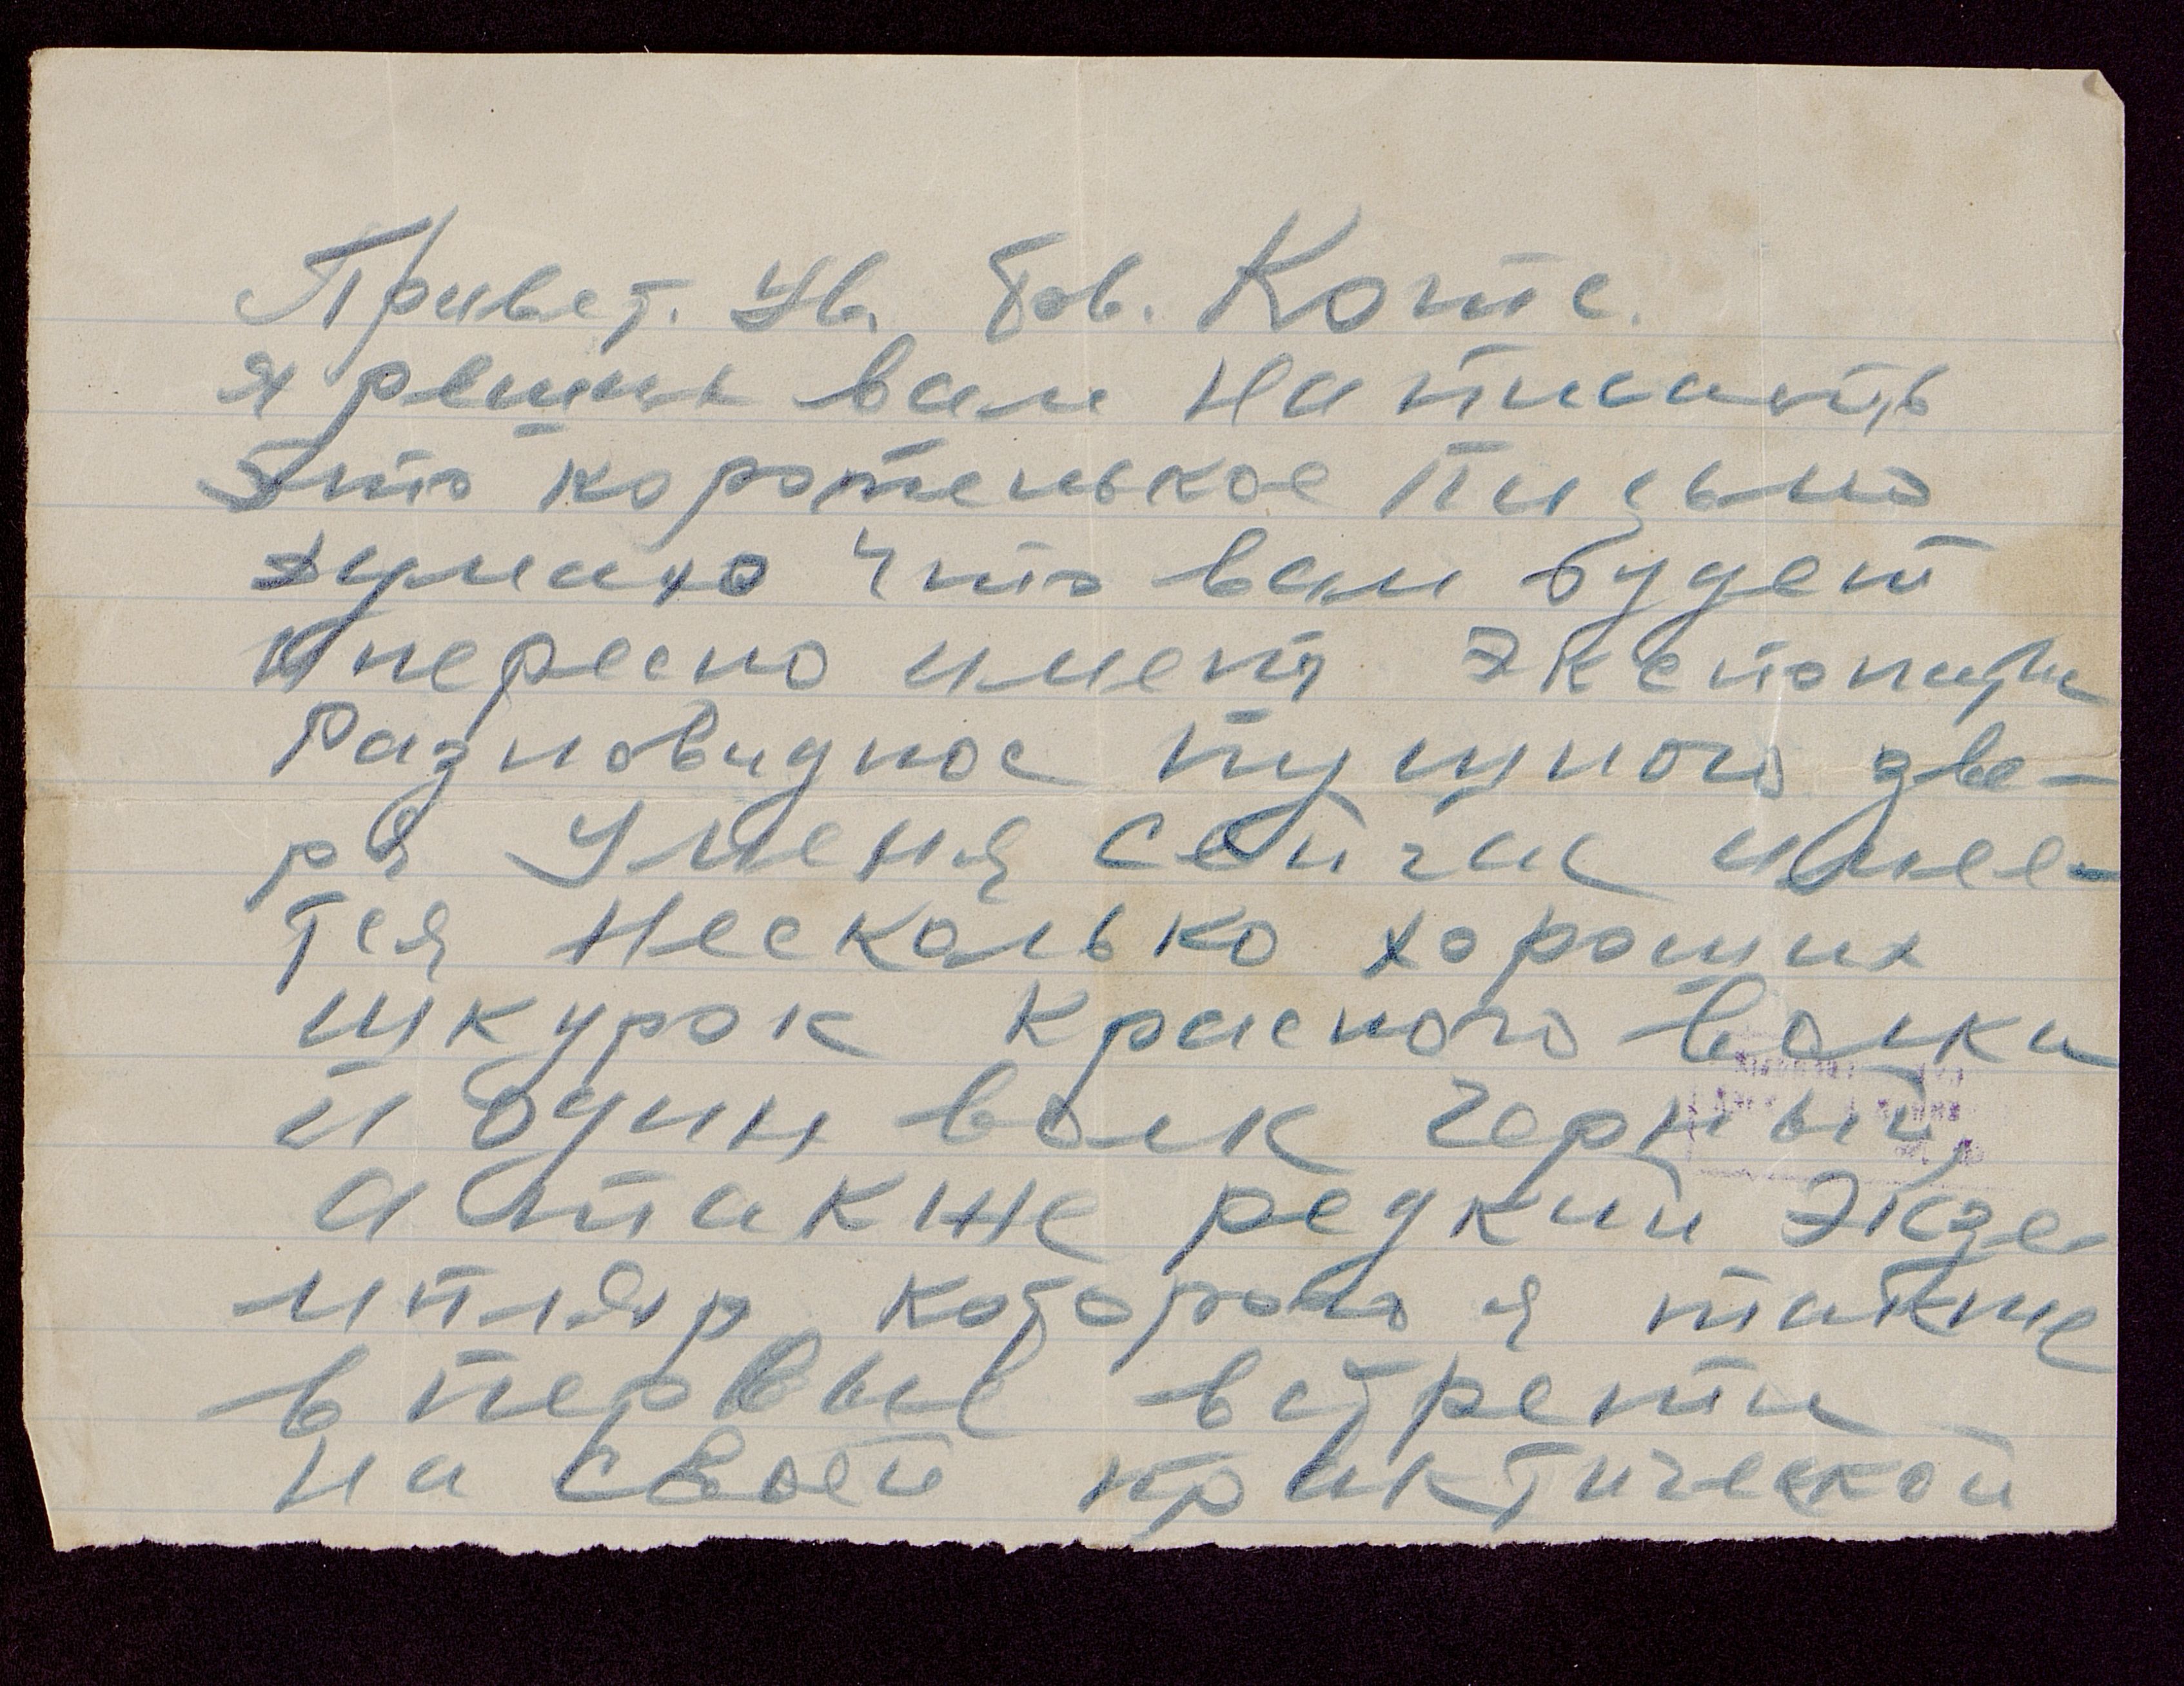 Привет. Ув. Тов. Котс.
я решил вам написать
это коротенькое письмо
думаю что вам будет
инересно имет экспонаты
Разновидное пушного зве-
ря У меня сейчас имее-
тся несколько хороших
шкурок красного волка
и один волк черный
а также редкий экзе
мпляр которого я также
в первые встрети
на своей практической